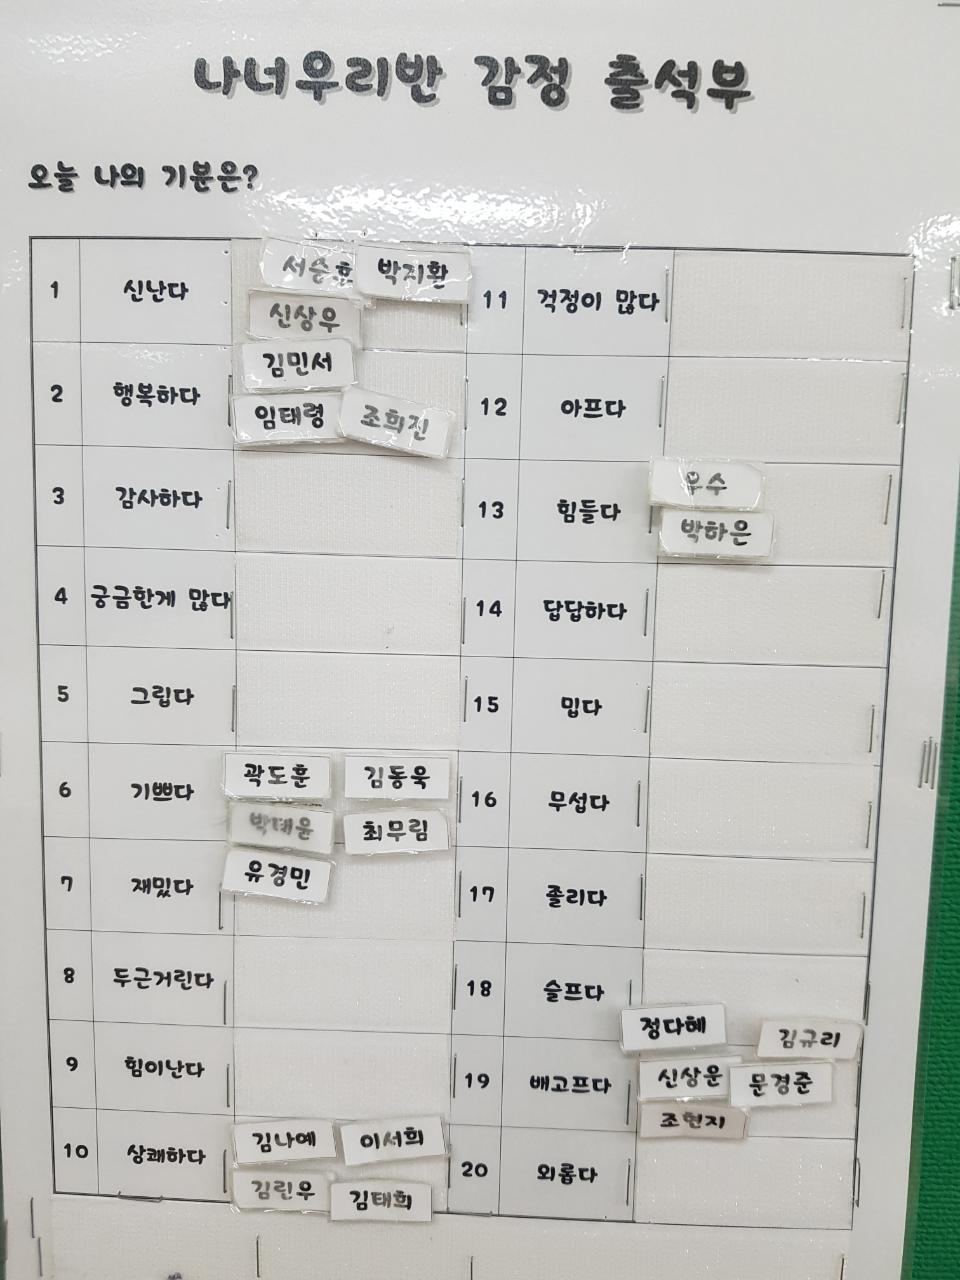 나너우리반 감정 출석부
오늘 나의 기분은?
1 신난다 서순효 박지환
신상우
2 행복하다 김민서
임태령 조희진
3 감사하다
4 궁금한게 많다
5 그립다
6 기쁘다 곽도훈 김동욱
박태윤 최무림
7 재밌다 유경민
8 두근거린다
9 힘이난다
10 상쾌하다 김나예 이서희
김린우 김태희
11 걱정이 많다
12 아프다
13 힘들다 우수
박하은
14 답답하다
15 밉다
16 무섭다
17 졸리다
18 슬프다
19 배고프다 정다혜 김규리
신상운 문경준
조현지
20 외롭다